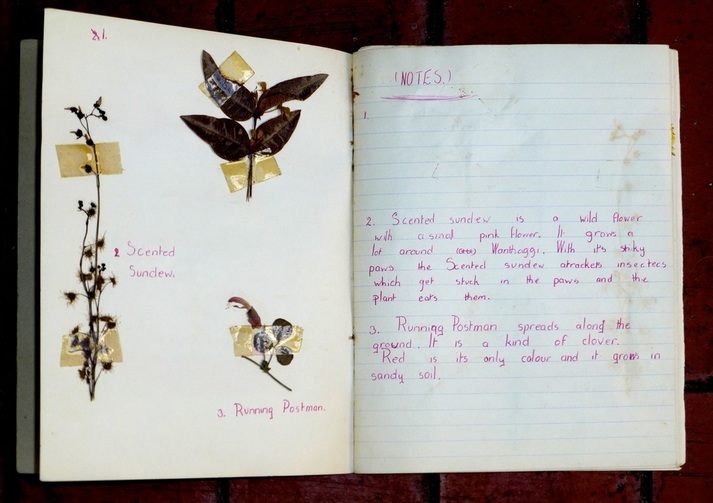 1.
2 Scented
Sundew.
3. Running Postman.
(NOTES.)
1.
2. Scented sundew is a wild flower
with a small pink flower. It grows a
lot around Wonthaggi. With its stiky
paws the Scented sundew atrackets insectecs
which get stuck in the paws and the
plant eats them.
3. Running Postman spreads along the
ground. It is a kind of clover.
Red is its only colour and it grows in
sandy soil.